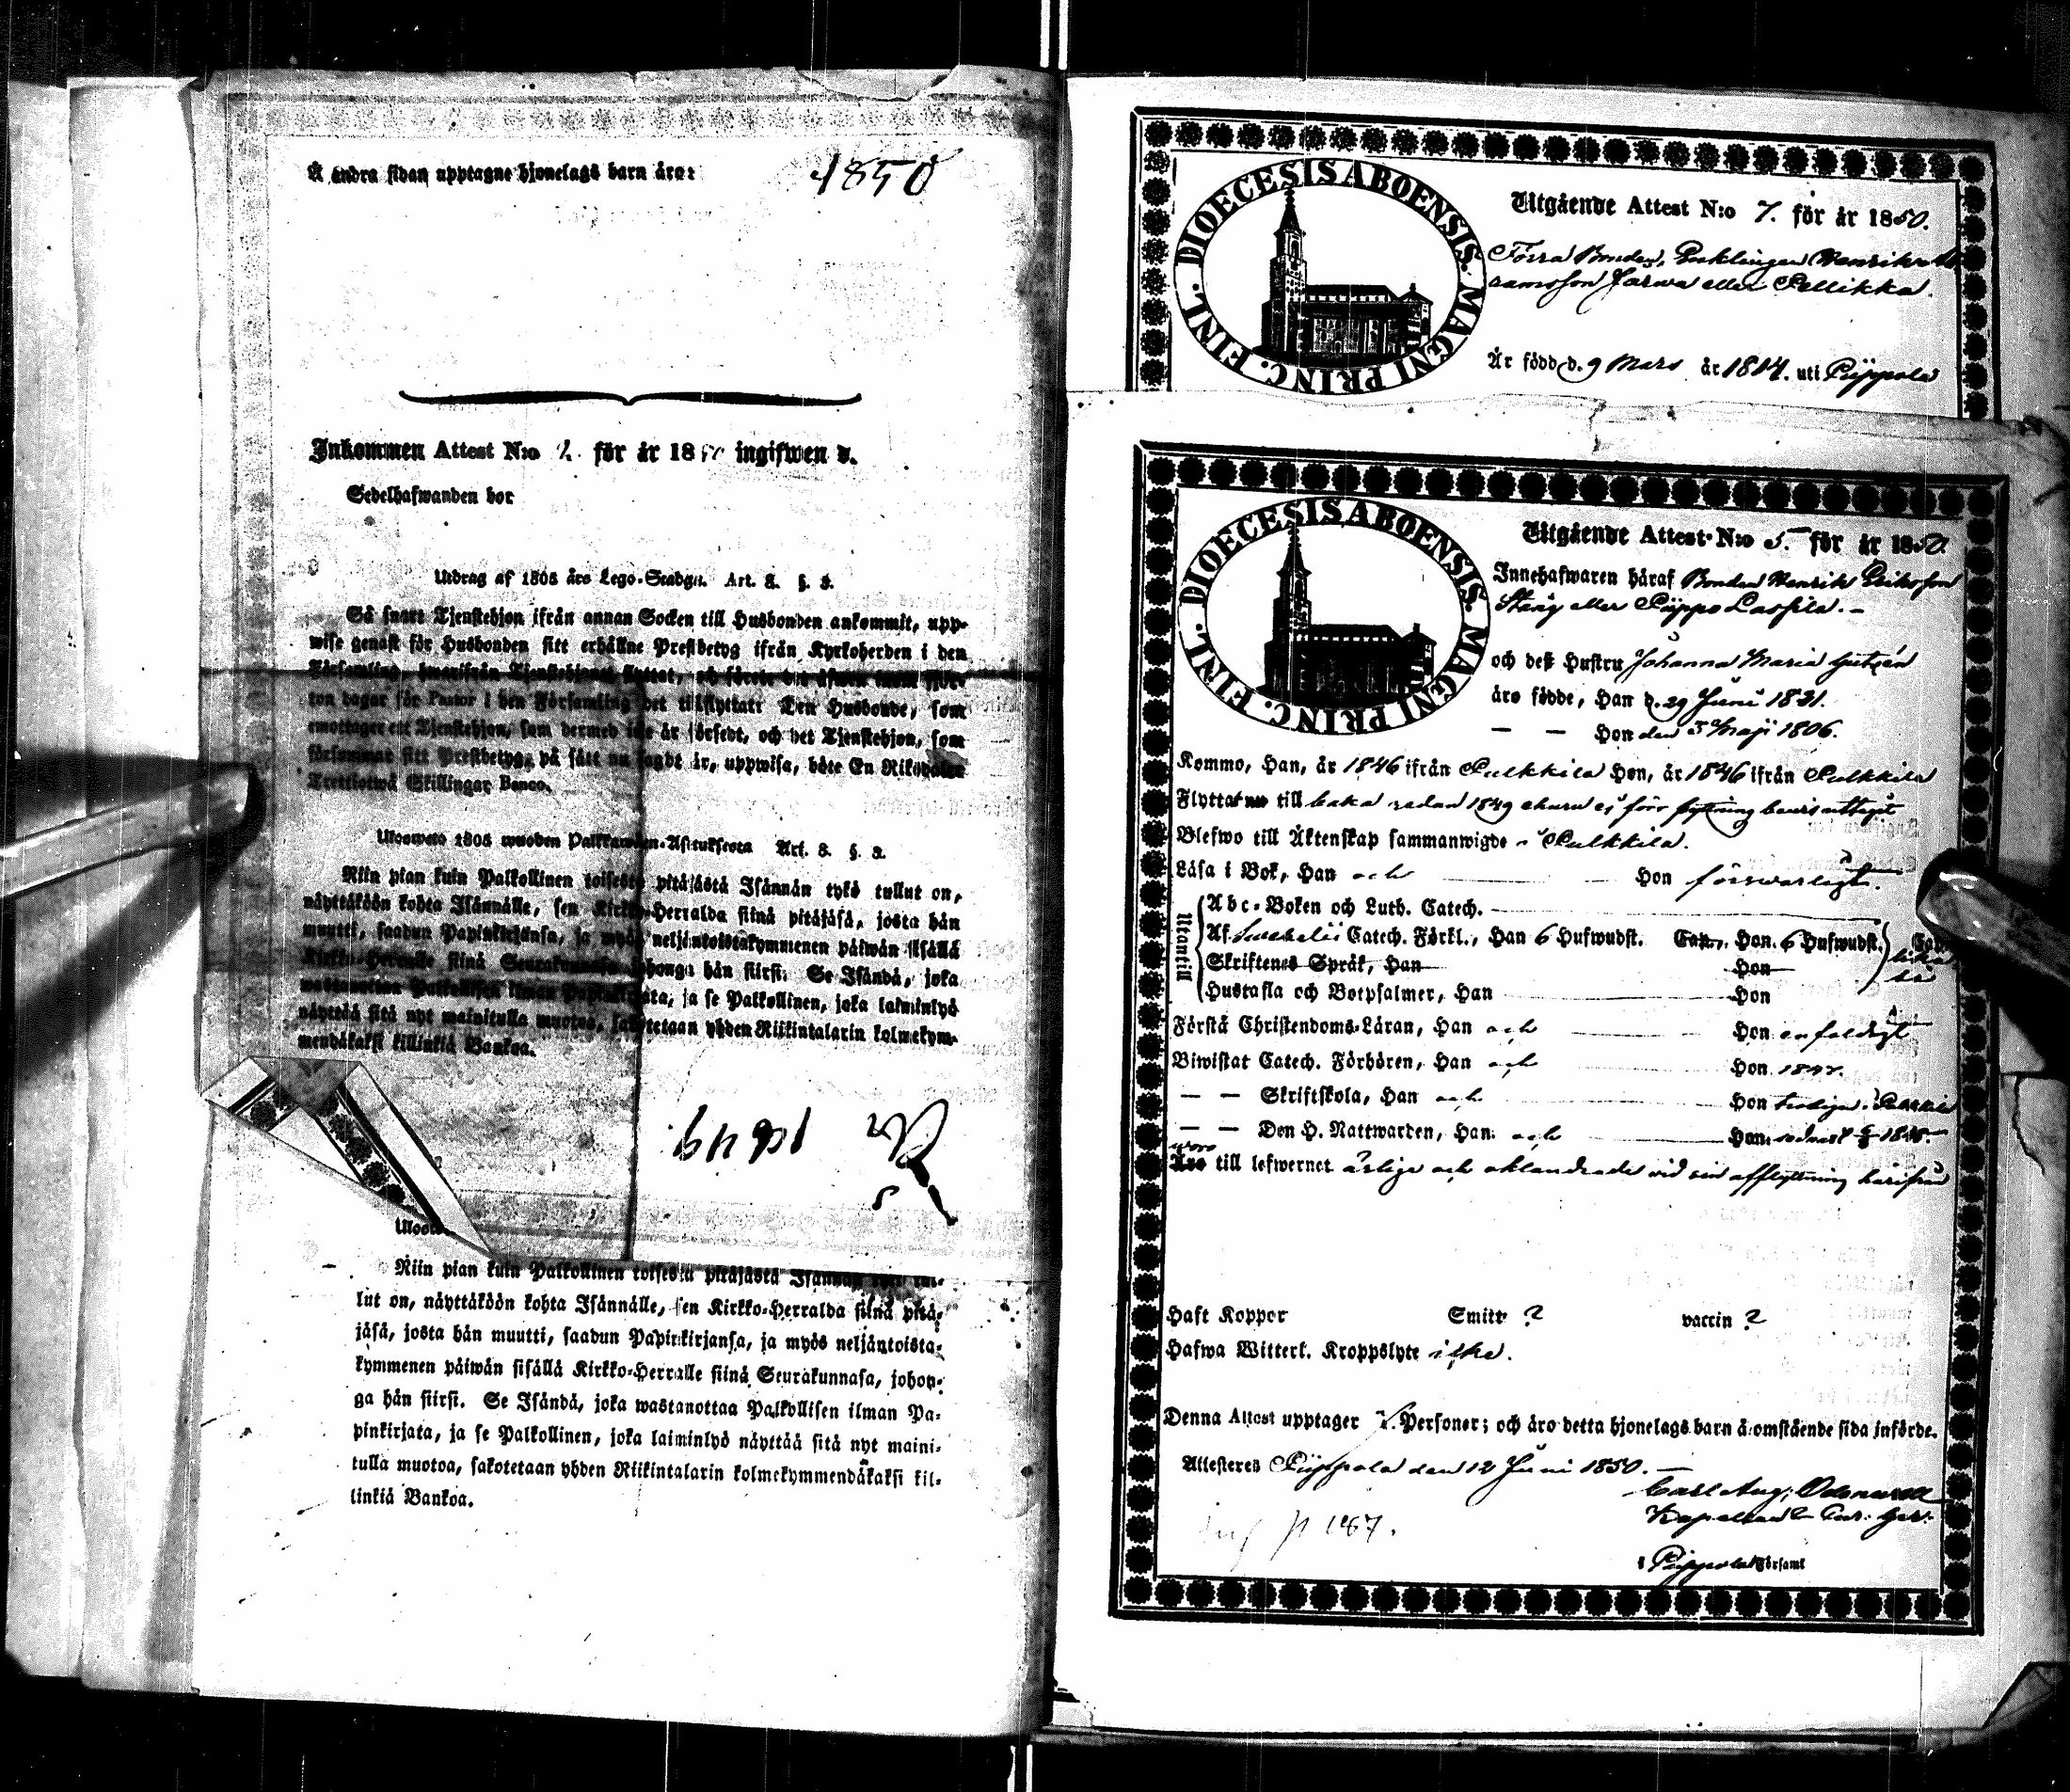 Å andra sidan upptagne hjonelags barn äro:
1850
Inkommen Attest N:o 2. för år 1850 ingifwen d.
Sedelhafwanden bor
Utdrag af 1805 års Lego-Stadgn. Art. 8. §. 3.
Så snart Tjenstehjon ifrån annan Socken till Husbonden ankommit, upp-
wise genast för Husbonden sitt erhållne Prestbetyg ifrån Kyrkoherden i den
Församling, hwarifrån Tjenstehjonet flyttat, och förete det äfwen inom fjor-
ton dagar för Pastor i den Församling det tillflyttat: Den Husbonde, som
emottager ett Tjenstehjon, som dermed icke är försedt, och det Tjenstehjon, som
försummar sitt Prestbetyg, på sätt nu sagdt är, uppwisa, böte En Riksdaler
Trettiotwå Skillingar Banco.
Ulosweto 1805 wuoden Palkkawäen-Asetuksesta Art. 8. §. 3.
Niin pian kuin Palkollinen toisesta pitäjästä Isännän tykö tullut on,
näyttäköön kohta Isännälle, sen Kirkko-Herralda siinä pitäjäsä, josta hän
muutti, saadun Papinkirjansa, ja myös neljäntoistakymmenen päiwän sisällä
Kirkko-Herralle siinä Seurakunnasa, johonga hän siirsi. Se Isändä, joka
wastanottaa Palkollisen ilman Papinkirjata, ja se Palkollinen, joka laiminlyö
näyttää sitä nyt mainitulla muotoa, sakotetaan yhden Riikintalarin kolmekym-
mendäkaksi killinkiä Bankoa.
1849
Ulosw
Niin pian kuin Palkollinen toisesta pitäjästä Isännän tykö tul-
lut on, näyttäköön kohta Isännälle, sen Kirkko-Herralda siinä pitä-
jäsä, josta hän muutti, saadun Papinkirjansa, ja myös neljäntoista-
kymmenen päiwän sisällä Kirkko-Herralle siinä Seurakunnasa, johon-
ga hän siirsi. Se Isändä, joka wastanottaa Palkollisen ilman Pa-
pinkirjata, ja se Palkollinen, joka laiminlyö näyttää sitä nyt maini-
tulla muotoa, sakotetaan yhden Riikintalarin kolmekymmendäkaksi kil-
linkiä Bankoa.
DIOECESIS ABOENSIS. MAGNI PRINC. FINL.
Utgående Attest N:o 7. för år 1850.
Förra Bonden, Enklingen Henrik
ramsson Jarwa eller Pellikka.
Är född d. 9 Mars år 1814. uti Pippola
DIOECESIS ABOENSIS. MAGNI PRINC. FINL.
Utgående Attest N:o 5. för år 1850.
Innehafwaren häraf Bonden Henrik Eriksson
Stärig eller Pippo Lassila. -
och deß Hustru Johanna Maria Gutzén
äro födde, Han d. 29 Juni 1821.
— — Hon den 5 Maji 1806.
Kommo, Han, år 1846 ifrån Pulkkila Hon, år 1846 ifrån Pulkkila
Flytta nu till baka redan 1849 ehuru ej förr flyttning bewis uttagit
Blefwo till Äktenskap sammanwigde i Pulkkila.
Läsa i Bok, Han och Hon förswarligt.
Utantill
Abc-Boken och Luth. Catech.
Af Swebelii Catech. Förkl., Han 6 Hufwudst. Cap. Hon. 6 Hufwudst.
Skriftenes Språk, Han Hon
Hustafla och Botpsalmer, Han Hon
Första Christendoms-Läran, Han och Hon enfaldigt
Biwistat Catech. Förhören, Han och Hon 1847.
— — Skriftskola, Han och Hon
— — Den H. Nattwarden, Han: och Hon:
woro
Äro till lefwernet ärlige och oklandrade wid sin afflyttning härifrån
Haft Koppor Smitt ? vaccin ?
Hafwa Witterl. Kroppslyte icke.
Denna Attest upptager 2. Personer; och äro detta hjonelags barn å omstående sida införde.
Attesteres Pippola den 12 Juni 1850. —
Carl Aug: Odenwall
Kapellan
p 187.
i Pippola Församl